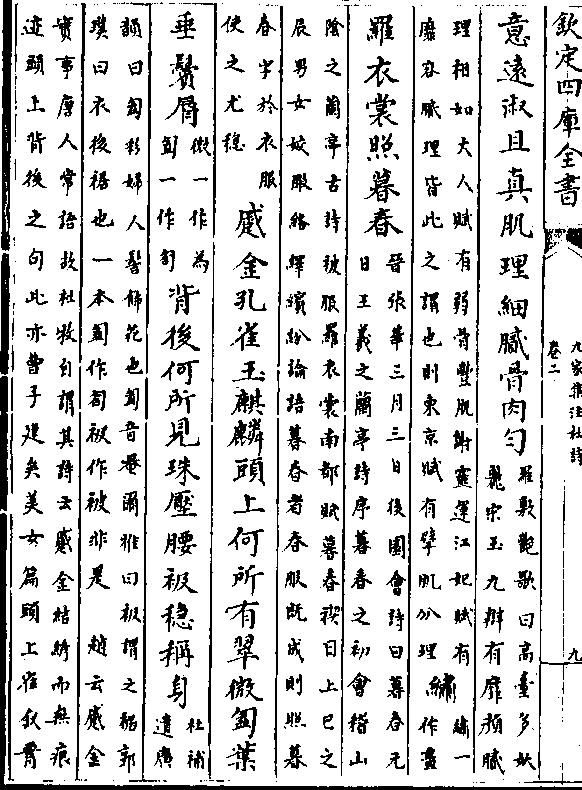 欽定四庫全書
九家集注杜詩
卷二
九
意遠淑且真肌理細膩骨肉勻
羅敷艷歌曰高臺多妖
麗宋玉九辯有靡顏膩
理相如大人賦有弱骨豐肌謝靈運江妃賦有
靡容膩理皆此之謂也則東京賦有擘肌分理
繡
繡一
作畫
羅衣裳照暮春
晉張華三月三日後園會詩曰暮春元
日王羲之蘭亭詩序暮春之初會稽山
陰之蘭亭古詩被服羅衣裳南都賦暮春禊日上巳之
辰男女姣服絡繹繽紛論語暮春者春服既成則照暮
春字於衣服
使之尤穩
蹙金孔雀玉麒麟頭上何所有翠微㔩葉
垂鬢脣
微一作為
㔩一作匎
背後何所見珠壓腰衱穩稱身
杜補
遺廣
韻曰㔩彩婦人髻飾花也㔩音罨爾雅曰衱謂之裾郭
璞曰衣後裾也一本㔩作匎衱作被非是 趙云蹙金
實事唐人常語故杜牧自謂其詩云蹙金結繡而無痕
迹頭上背後之句此亦曹子建矣美女篇頭上雀釵